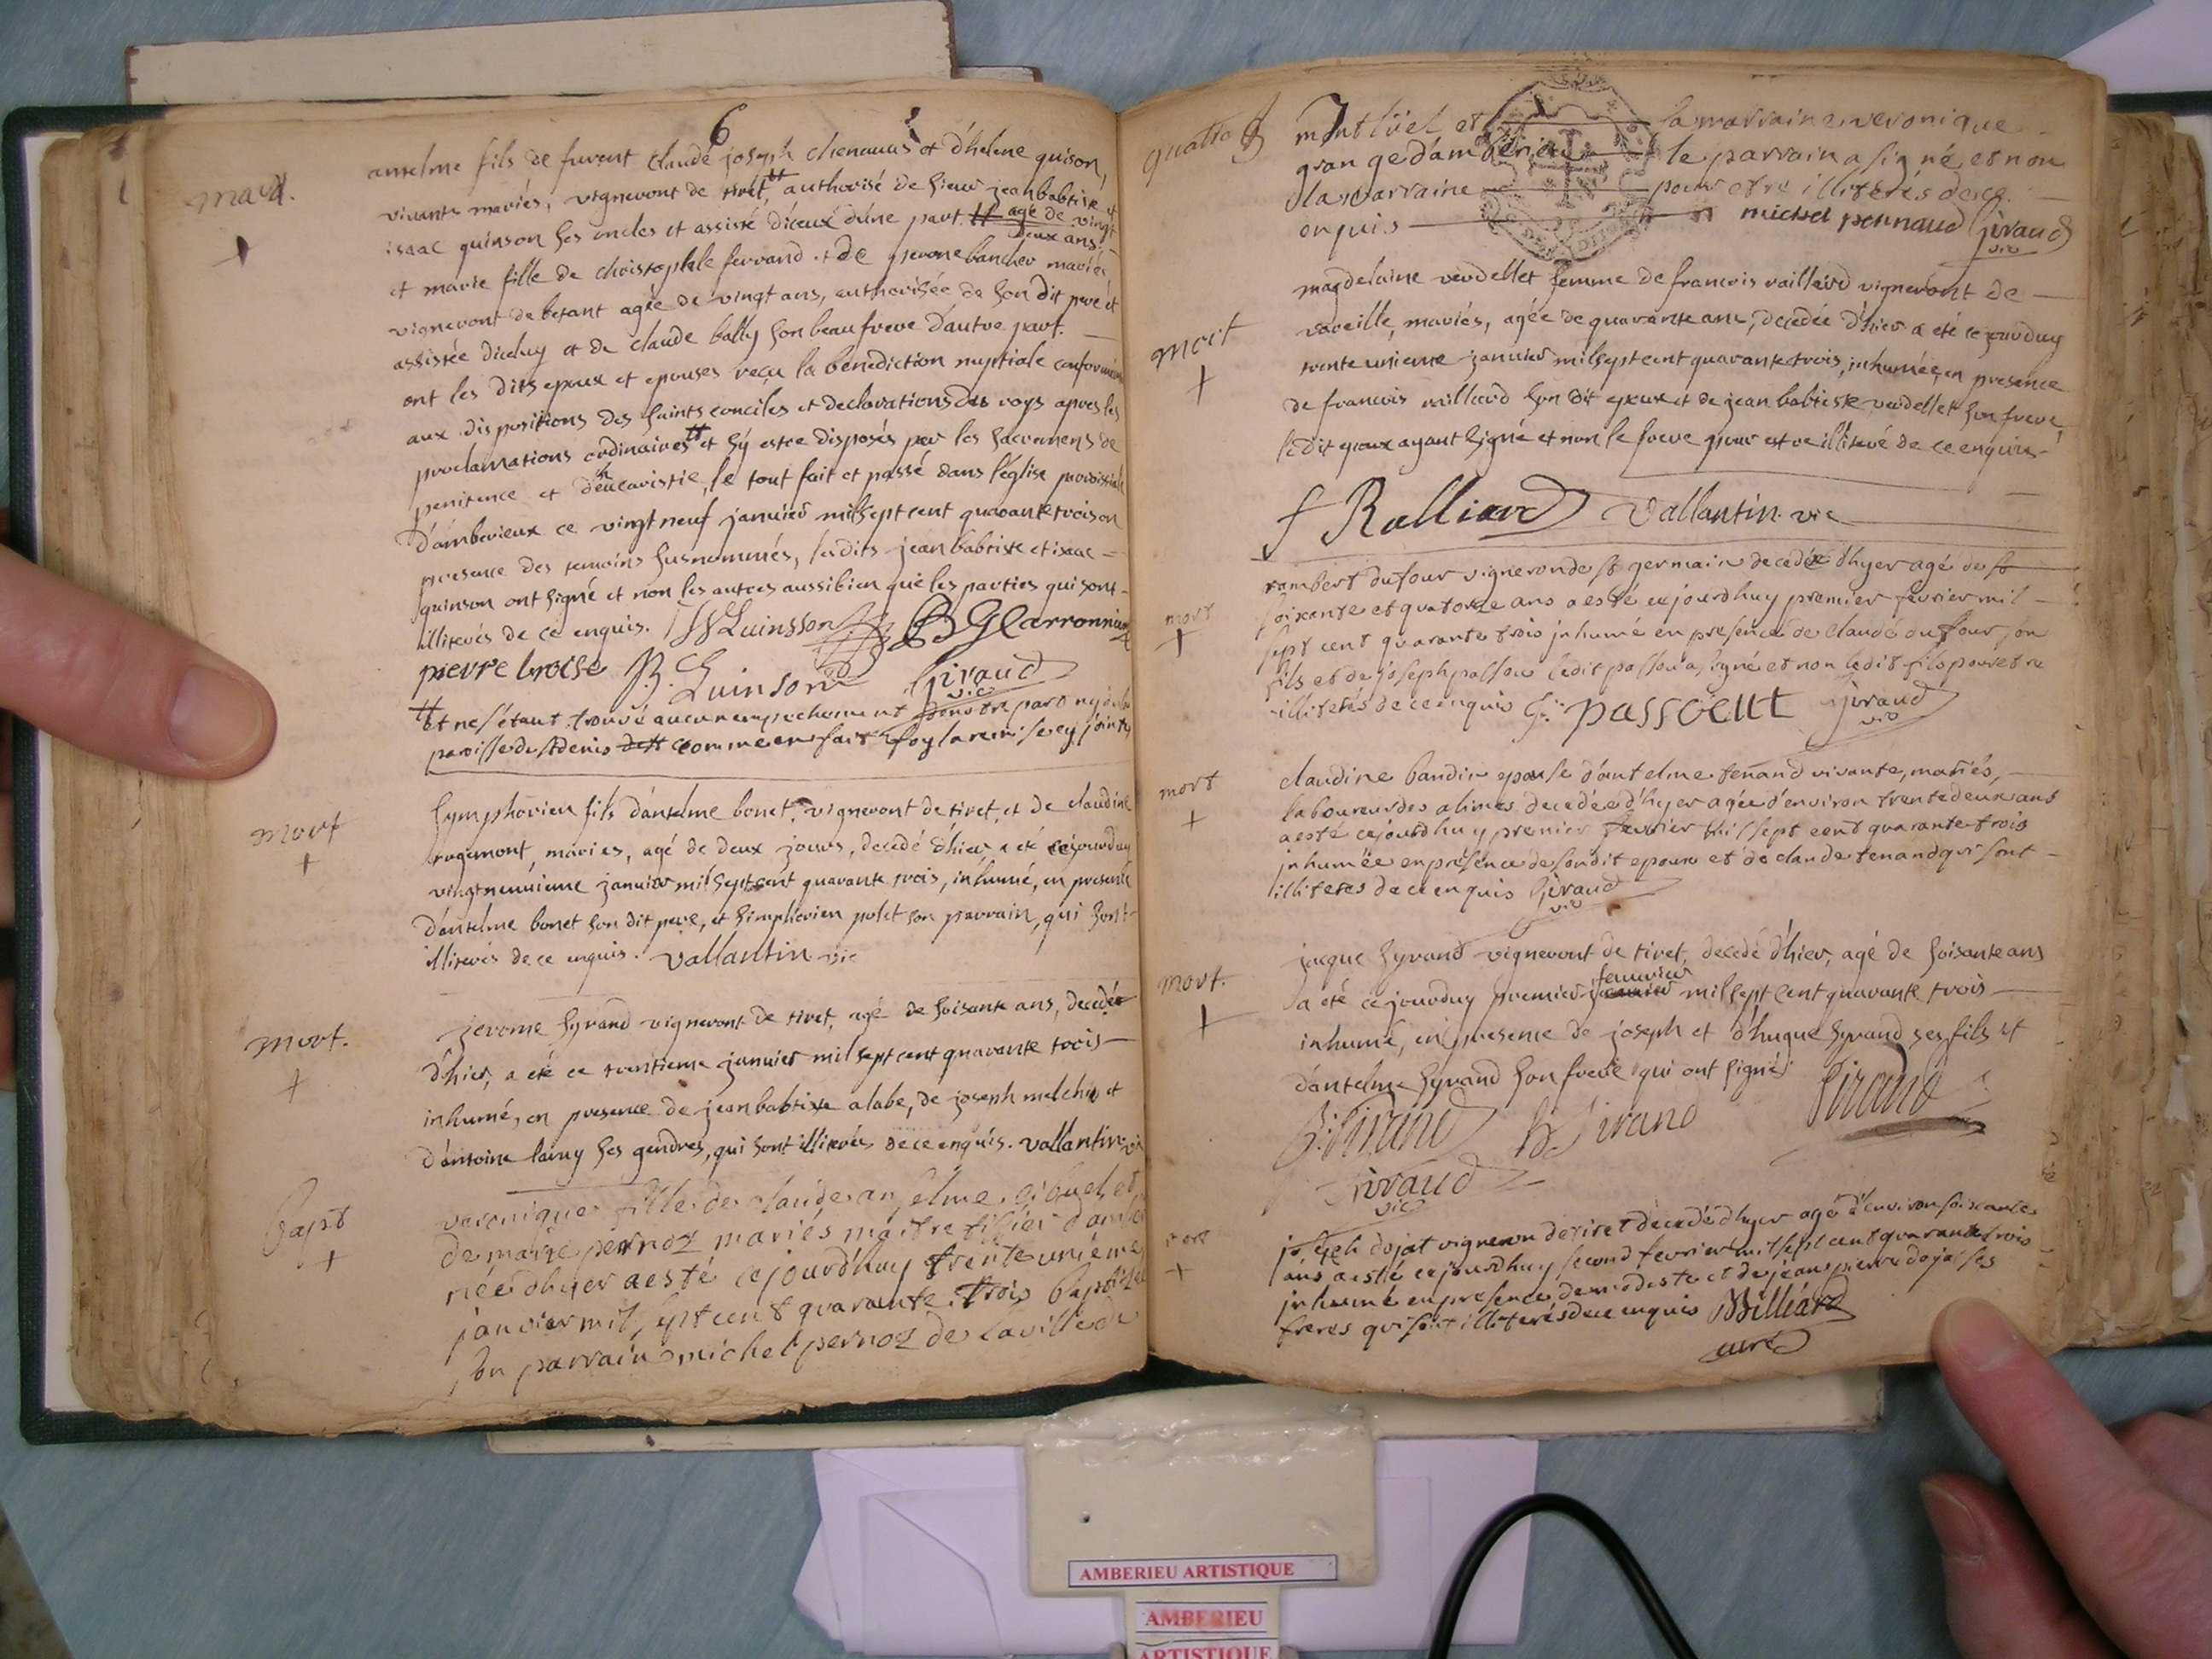 6
mari.
anselme fils de furent claude joseph chenavas et d'helene quison,
vivants mariés, vigneront de tiret, tt authorisé de sieur jean babtiste et
isaac quinson ses oncles et assisté d'iceux d'une part. tt agé de vingt
deux ans.
et marie fille de christophle ferrand et de pierone bancher mariés
vigneront de betant agée de vingt ans, authorisée de son dit pere et
assistée d'iceluy et de claude bally son beau frere d'autre part.
ont les dits epoux et epouses reçu la benediction nuptiale conformement
aux dispositions des saints conciles et declarations des roys apres les
proclamations ordinaires tt et s'y estre disposés par les sacremens de
penitence et d'eucaristie, le tout fait et passé dans l'église paroissiale
d'amberieux ce vingt neuf janvier mil sept cent quarante trois en
presence des temoins susnommés, lesdits jean babtiste et isaac
quinson ont signé et non les autres aussi bien que les parties qui sont
illiterés de ce enquis. Quinsson
pierre broise Quinson Giraud
vic
tt et ne s'étant trouvé aucun empechement de notre part ny de la
paroisse de st denis comme en fait foy la remise cy jointe
mort
Symphorien fils d'antelme bonet, vigneront de tiret, et de claudine
rugemont, mariés, agé de deux jours, decedé d'hier a été cejourduy
vingt neuvieme janvier mil sept cent quarante trois, inhumé, en presence
d'antelme bonet son dit pere, et simphorien polet son parrain, qui sont
illiterés de ce enquis. Vallantin vic
mort.
jerome Syrand vigneront de tiret, agé de soisante ans, decedé
d'hier, a été ce trentieme janvier mil sept cent quarante trois
inhumé, en presence de jean babtiste alabe, de joseph melchior et
d'antoine lamy ses gendres, qui sont illiterés de ce enquis. Vallantin vic
Bapt
veronique fille de claude anselme et
de marie pernoz mariés maitre d'amber
née d'hyer a esté cejourd'huy trente unieme
janvier mil sept cent quarante trois baptisée
son parrain michel pernoz de la ville de
quatre
montluel et la marraine veronique
grange d'amberieu le parrain a signé et non
la marraine pour etre illiterés de ce
enquis michel pernaud Giraud
vic
mort
magdelaine verdellet femme de francois railliard vigneront de
vareille, mariés, agée de quarante ans, decedée d'hier a été cejourduy
trente unieme janvier mil sept cent quarante trois, inhumée, en presence
de francois railliard son dit epoux et de jean babtiste verdellet son frere,
le dit epoux ayant signé et non le frere pour estre illiteré de ce enquis
f Ralliard Vallantin vic
mort
rambert dufour vigneron de st germain decedé d'hyer agé de
soixente et quatorze ans a esté cejourdhuy premier fevrier mil
sept cent quarante trois inhumé en presence de claude dufour son
fils et de joseph passou ledit passou a signé et non ledit fils pour etre
illiterés de ce enquis passoeut Giraud
vic
mort
claudine bandin epouse d'antelme tenand vivante, mariés,
laboureurs des alimes decedée d'hyer agée d'environ trente deux ans
a esté cejourdhuy premier fevrier mil sept cent quarante trois
inhumée en presence de son dit epoux et de claude tenand qui sont
illiteres de ce enquis Giraud
vic
mort.
jacque Syrand vigneront de tiret, decedé d'hier, agé de soisante ans
a été cejourduy premier janvier fevrier mil sept cent quarante trois
inhumé, en presence de joseph et d'hugue Syrand ses fils et
d'antelme Syrand son frere qui ont signé
Sirand h Sirand Sirand
Giraud
vic
mort
joseph dojat vigneron de tiret decedé d'hyer agé d'environ soixante
ans a esté cejourdhuy second fevrier mil sept cent quarante trois
inhumé en presence de modeste et de jean pierre dojat ses
freres qui sont illiterés de ce enquis Billiard
curé
AMBERIEU ARTISTIQUE
AMBERIEU
ARTISTIQUE